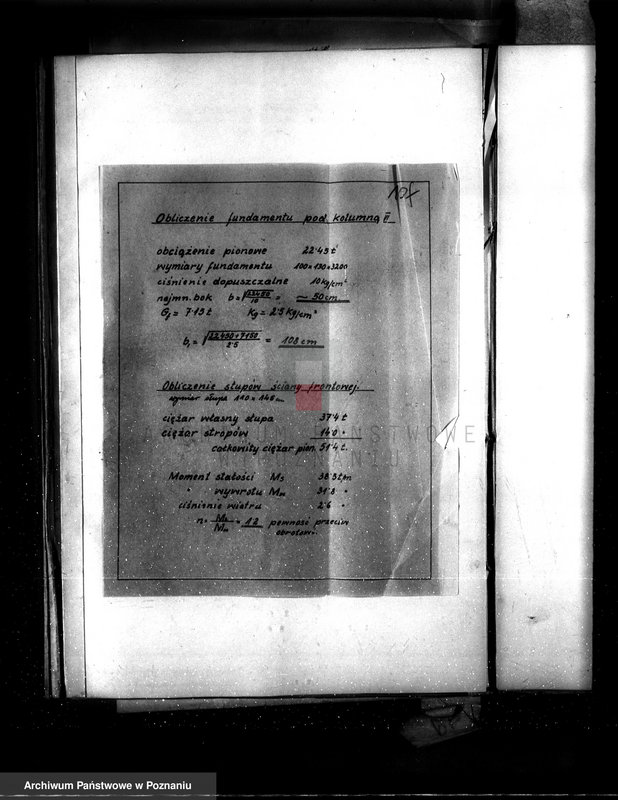 10f
Obliczenie fundamentu pod kolumną II
obciążenie pionowe 22·45 t
wymiary fundamentu 100×130×3200
ciśnienie dopuszczalne 10 kg/cm²
najmn. bok b = √22450/10 = ~ 50 cm
G₁ = 7·15 t Kg = 2·5 kg/cm²
b₁ = √22450+7150/2·5 = 108 cm
Obliczenie słupów ściany frontowej.
wymiar słupa
ciężar własny słupa 37·4 t
ciężar stropów 14·0 "
całkowity ciężar pion. 51·4 t.
Moment stałości Ms 38·3 tm
" wywrotu Mw 31·8 "
ciśnienie wiatru 2·6 "
n = Ms/Mw = 1·2 pewność przeciw
obrotowi.
Archiwum Państwowe w Poznaniu